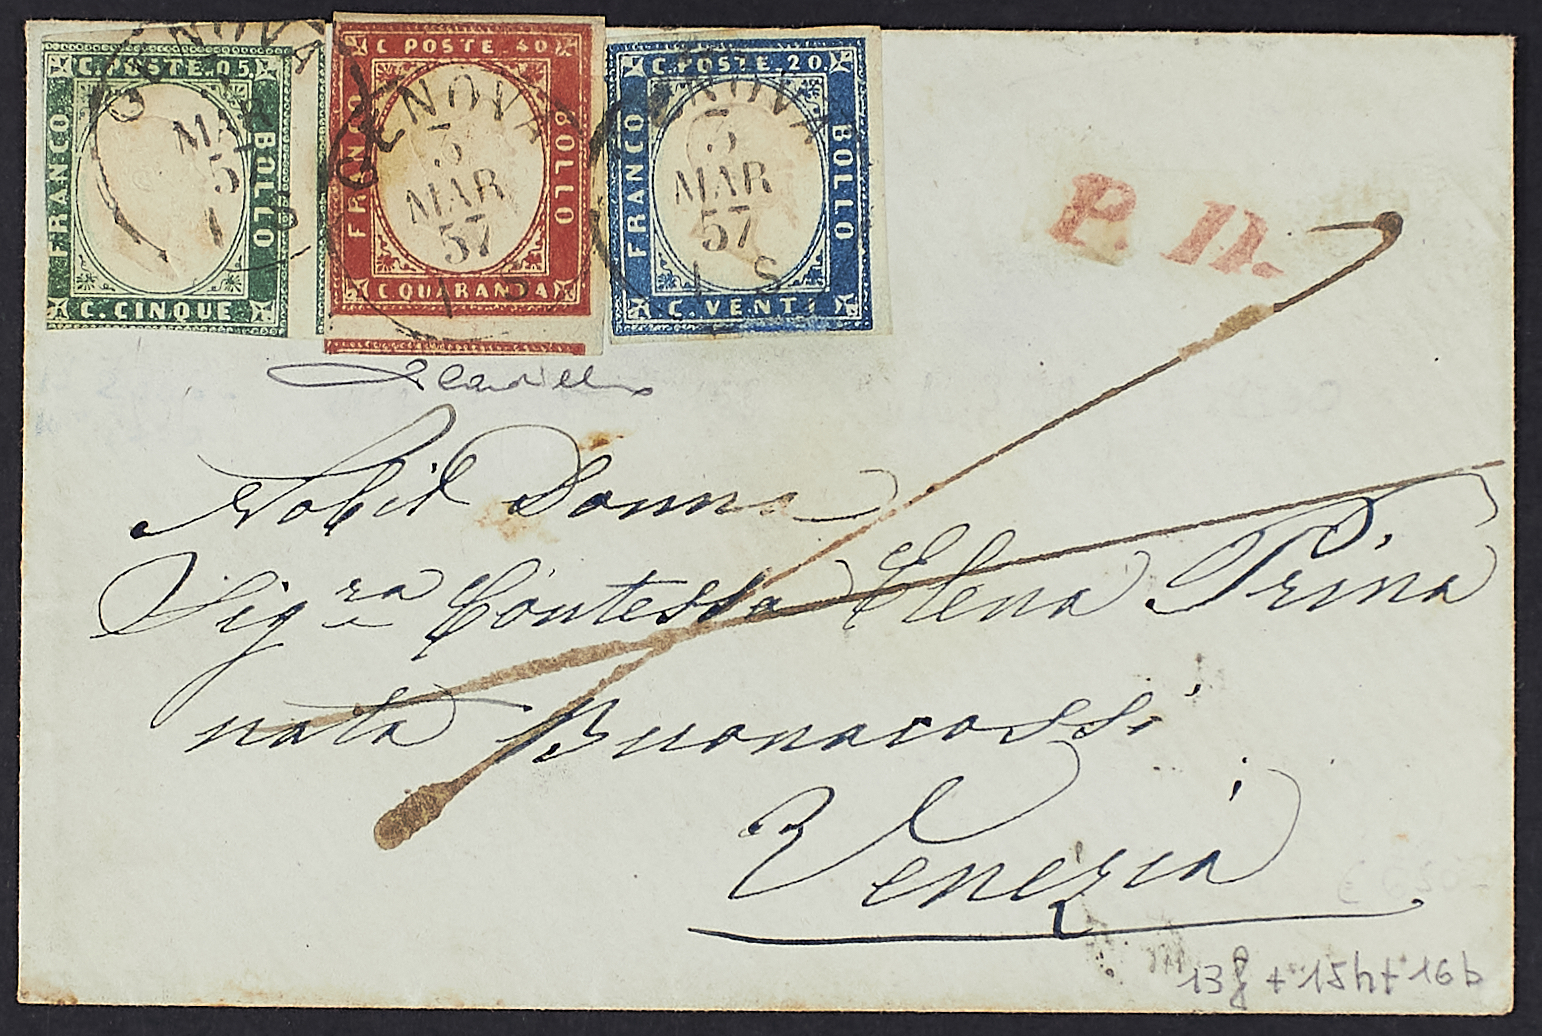 C. POSTE. 05.
FRANCO
BOLLO
C. CINQUE
C POSTE 40
FRANCO
BOLLO
C QUARANTA
C. POSTE. 20
FRANCO
BOLLO
C. VENTI
GENOVA
MAR
5
1 S
GENOVA
5
MAR
57
1 S
GENOVA
5
MAR
57
1 S
P. D.
Nobil Donna
Sig.ra Contessa Elena Prina
nata Buonacossi
Venezia
€ 650
13f + 15h + 16b